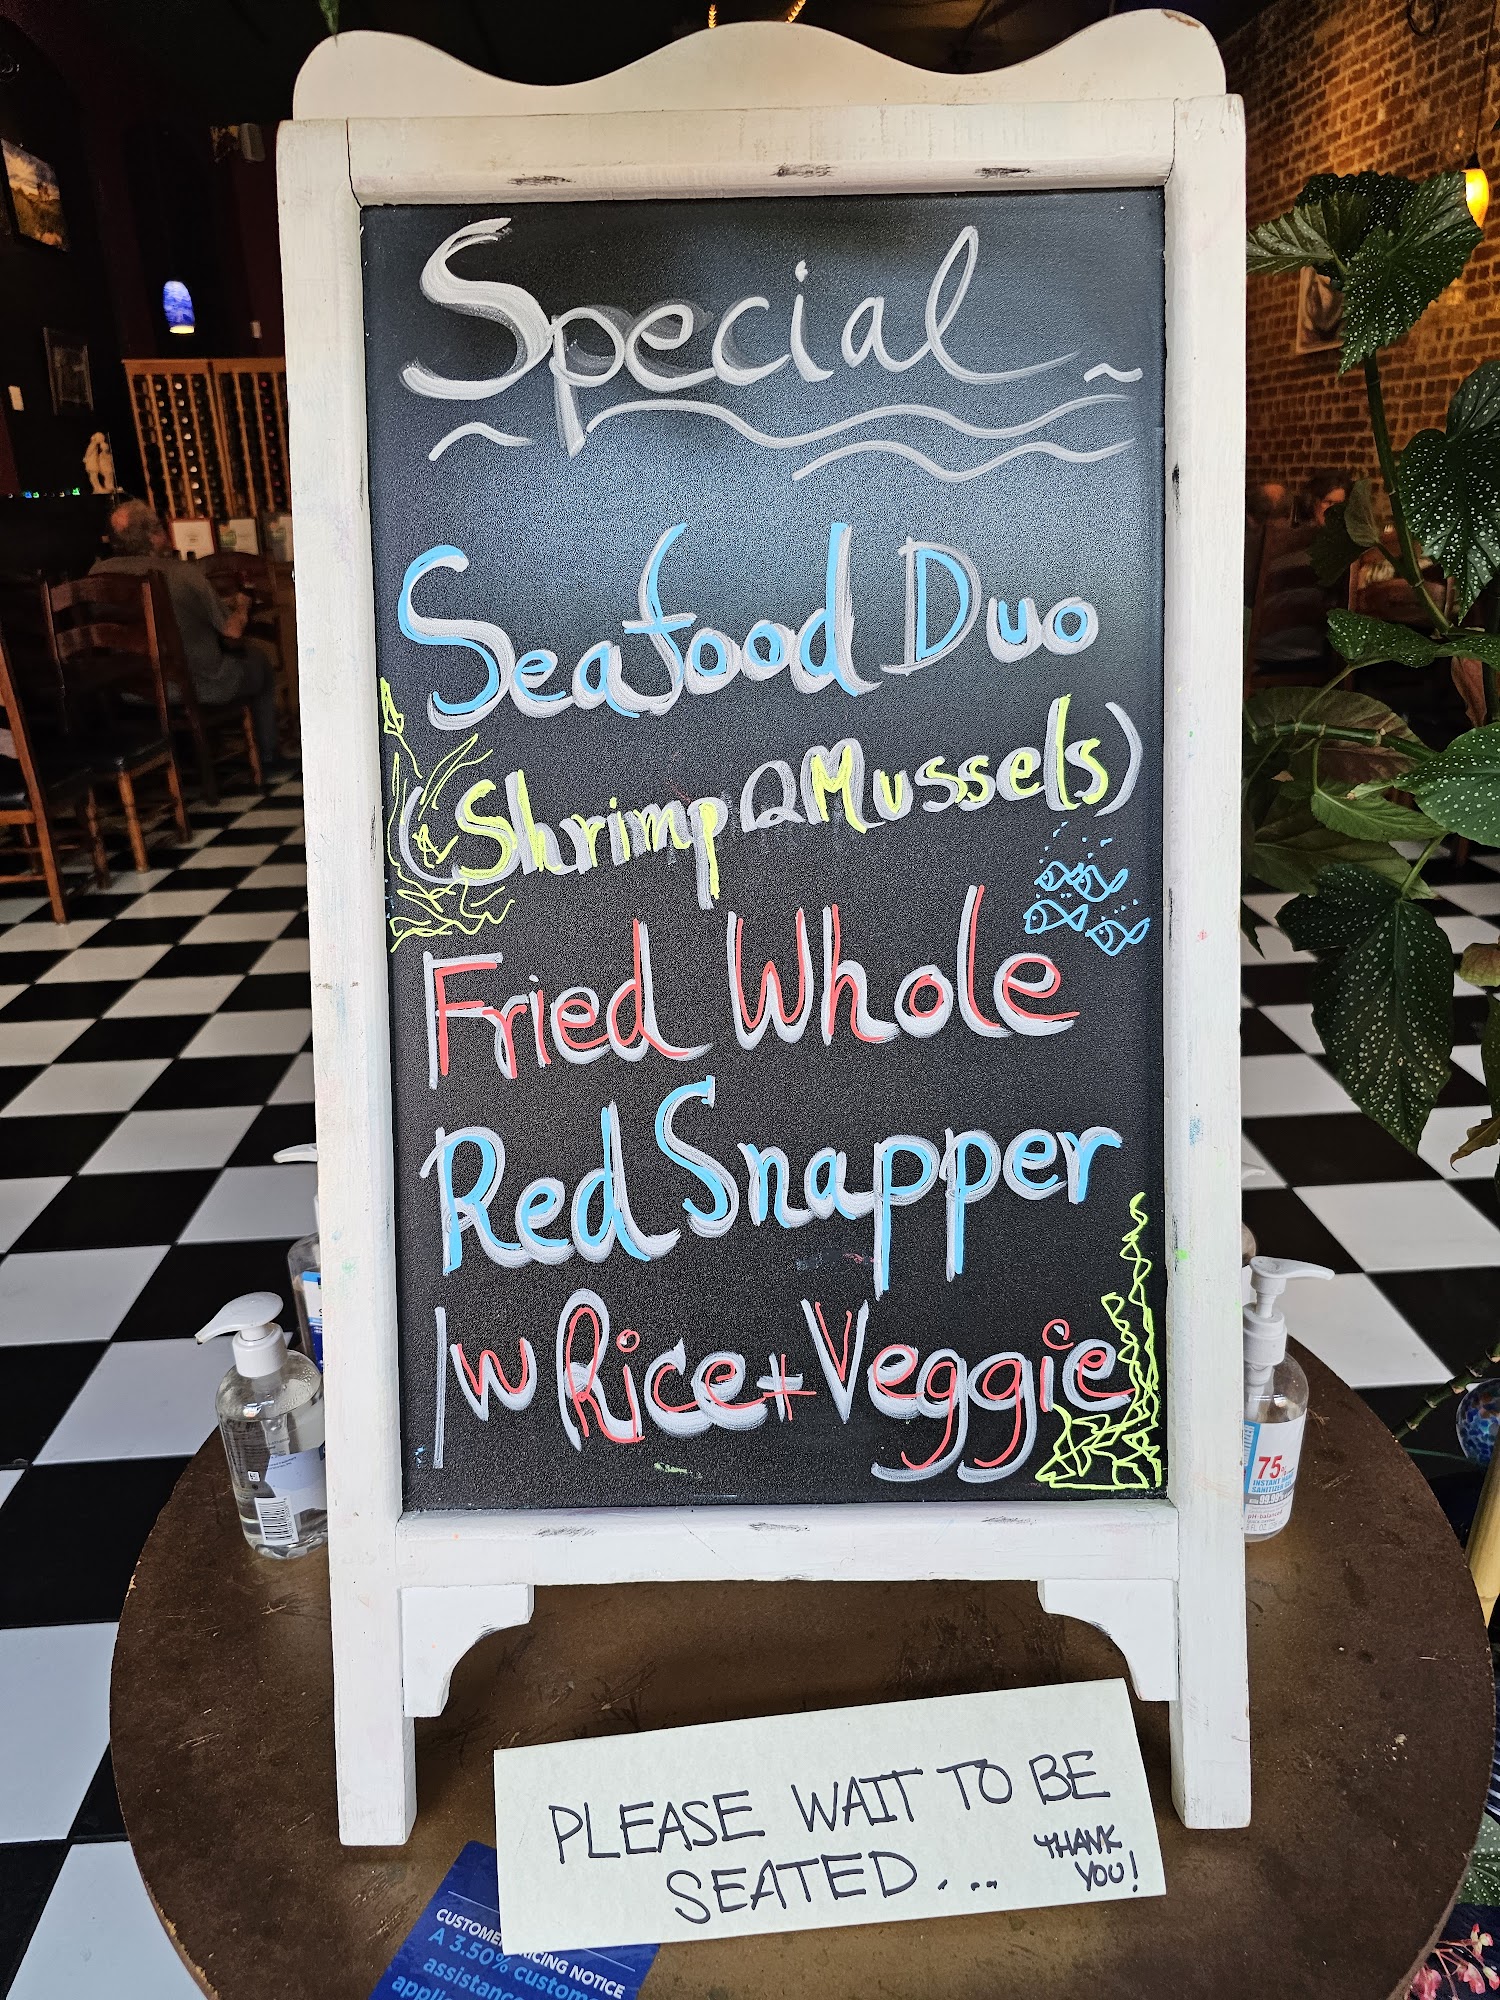 Special
Seafood Duo
(Shrimp & Mussels)
Fried Whole
Red Snapper
/w Rice + Veggie
PLEASE WAIT TO BE
SEATED...
THANK
YOU!
CUSTOMER PRICING NOTICE
A 3.50% custom
assistance
appli
75%
INSTANT HAND
SANITIZER
99.99%
pH-balanced
FL OZ